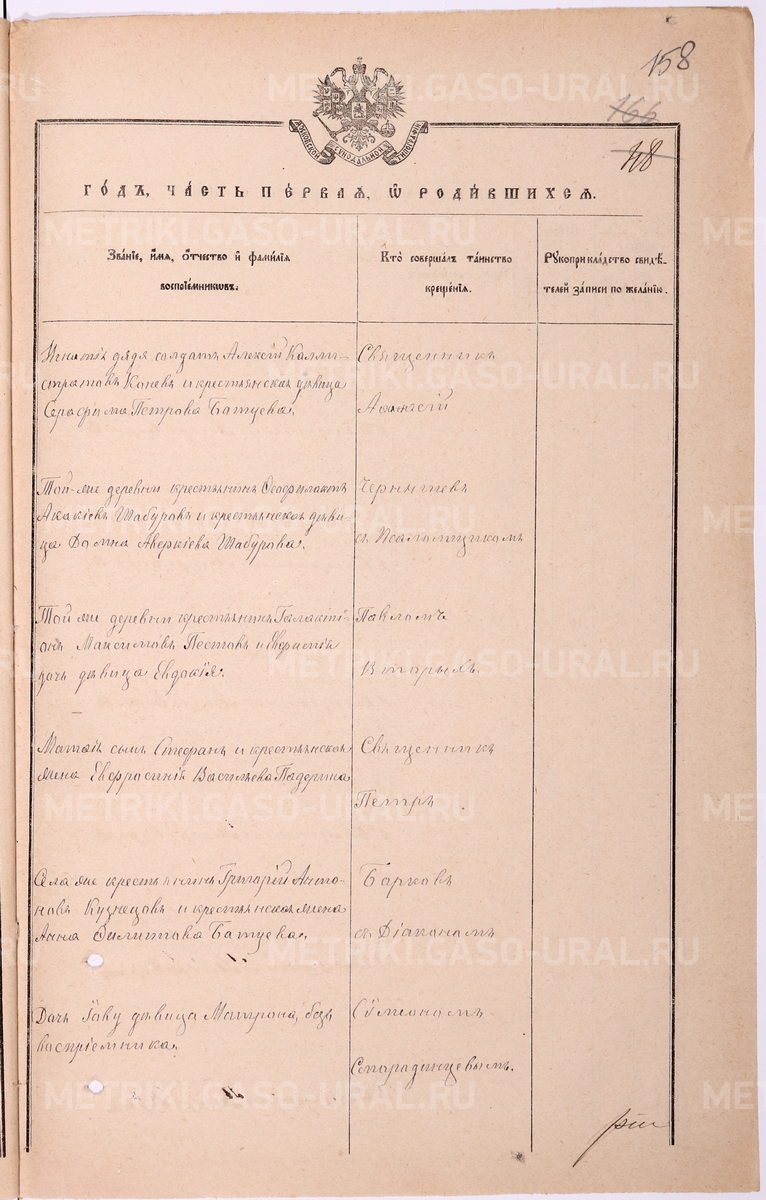 158
166
148
МОСКОВСКОЙ СѴНОДАЛЬНОЙ ТИПОГРАФІИ
ГОДЪ, ЧАСТЬ ПЕРВАЯ, Ѿ РОДИВШИХСЯ.
Званіе, имя, отчество и фамилія
воспріемниковъ.
Кто совершалъ таинство
крещенія.
Рукоприкладство свидѣ-
телей записи по желанію.
Игнатія дядя солдатъ Алексій Калли-
стратовъ Коневъ и крестьянская дѣвица
Серафима Петрова Батуева.
Священникъ
Аѳанасій
Той-же деревни крестьянинъ Ѳеофилактъ
Акакіевъ Шабуровъ и крестьянская дѣви-
ца Домна Аверкіева Шабурова.
Чернышевъ
съ Псаломщикомъ
Той же деревни крестьянинъ Галактіо-
онъ Максимовъ Пестовъ и
дочь дѣвица Евдокія.
Павломъ
Вторыхъ.
Матѳія сынъ Стефанъ и крестьянская
жена Евфрасинія Васильева Падерина
Священникъ
Петръ
Села же крестьянинъ Григорій Анто-
новъ Кузнецовъ и крестьянская жена
Анна Филитова Батуева.
Барковъ
съ Діакономъ
Дочь Іову дѣвица Матрона, безъ
воспріемника.
Сѵмеономъ
Стародинцевымъ.
METRIKI.GASO-URAL.RU